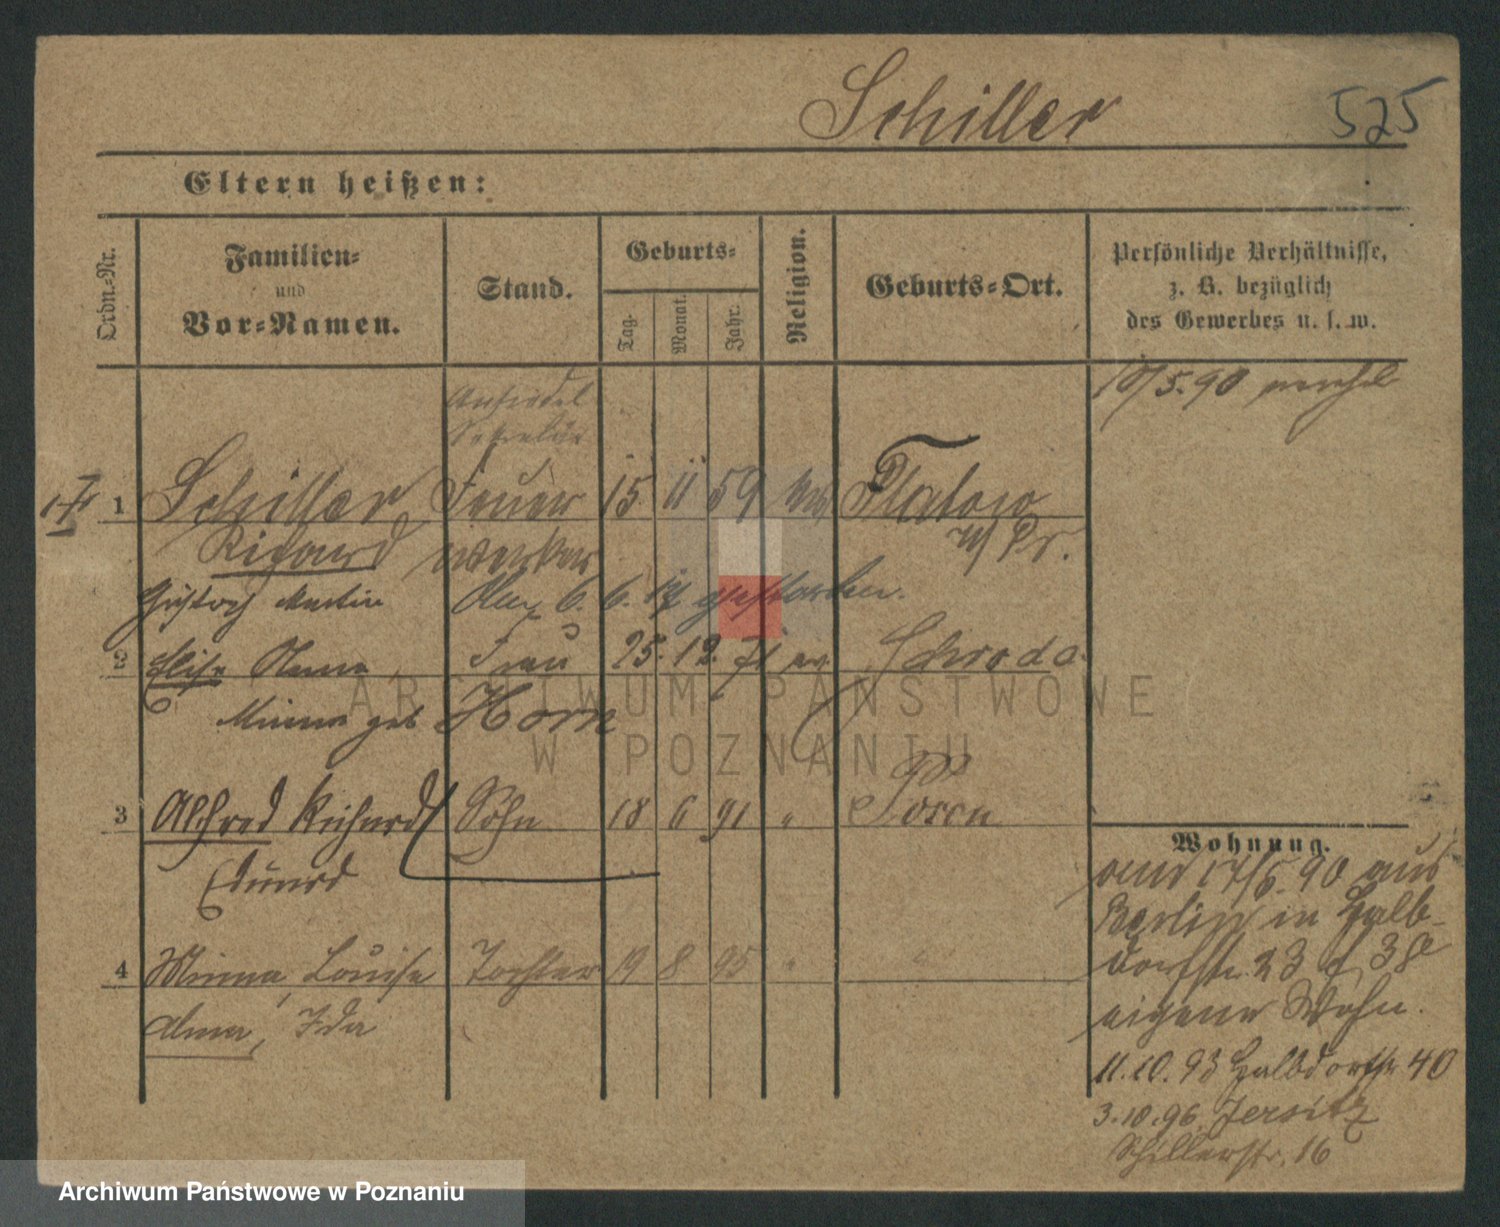 Schiller 525
Eltern heißen:
Ordn.-Nr.
Familien-
und
Vor-Namen.
Stand.
Geburts-
Tag.
Monat.
Jahr.
Religion.
Geburts-Ort.
Persönliche Verhältnisse,
z. B. bezüglich
des Gewerbes u. s. w.
10/5.90
Ansiedel
Sekretär
1 Schiller Feuer 15 11 59 ev Flatow
Richard werker W/Pr.
Gustav Martin 6. 6. gestorben.
2 Elise Anna Frau 25. 12. 71 ev. Schroda
Minna geb Horn
3 Alfred Richard Sohn 18 6 91 " Posen
Eduard
4 Minna, Louise Tochter 19 8 95 " "
Alma, Ida
Wohnung.
17/5.90 aus
Berlin in Halb-
dorfstr. 23
eigene Wohn.
11.10.93 Halbdorfstr 40
3.10.96 Jersitz
Schillerstr. 16
ARCHIWUM PAŃSTWOWE
W POZNANIU
Archiwum Państwowe w Poznaniu